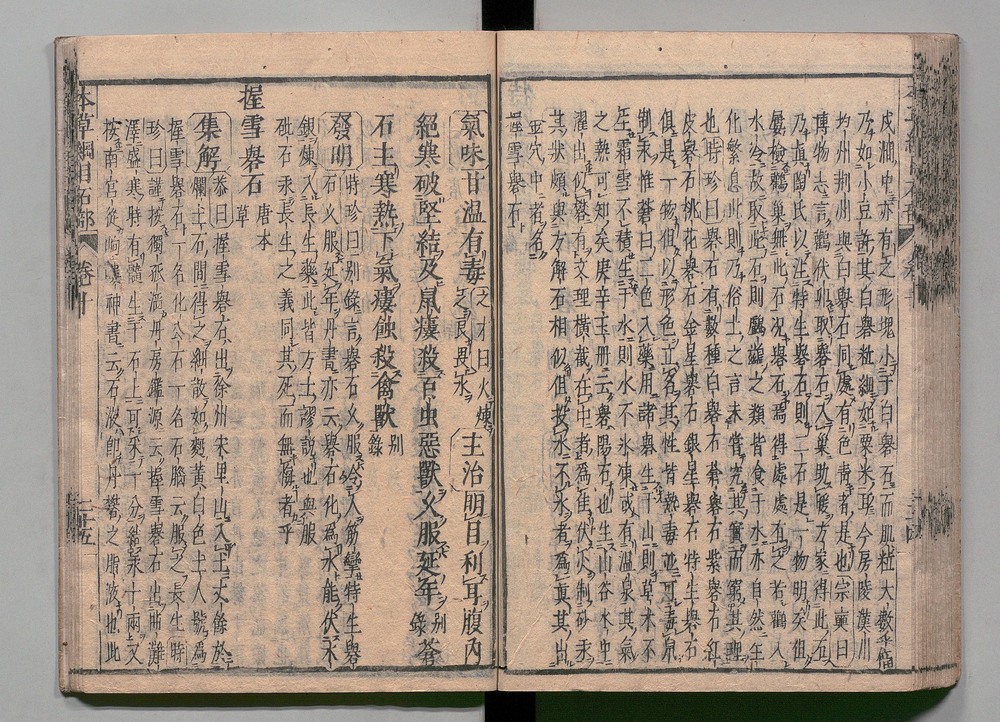 戎湘中亦有之形塊小于白礜石而肌粒大數倍
乃如小豆許白礜粒細如粟米耳今房陵漢川
均州荆州與白礜石同處有色青者是也宗奭曰
博物志言鸛伏卵取礜石入巢助暖方家得此石
乃真陶氏以注特生礜石則二石是一物明矣但
屢檢鸛巢無此石況礜石焉得處處有之若鸛入
水冷故取此石則鸕鷀之類皆食于水亦自然生
化繁息此則乃俗士之言未嘗究其實而窮其理
也時珍曰礜石有數種白礜石蒼礜石紫礜石紅
皮礜石桃花礜石金星礜石銀星礜石特生礜石
俱是一物但以形色立名其性皆熱毒並可毒鼠
制汞惟蒼白二色入藥用諸礜生于山則草木不
生霜雪不積生于水則水不冰凍或有温泉其氣
之熱可知矣庚辛玉册云礜陽石也生山谷水中
濯出似礜有文理横截在中者爲佳伏火制砂汞
其狀頗與方解石相似但投水不冰者爲真其出
金穴中者名
握雪礜石
氣味甘温有毒之才曰火煉之良畏水主治明目利耳腹内
絶寒破堅結及鼠瘻殺百虫惡獸久服延年别錄蒼
石主寒熱下氣瘻蝕殺禽獸别錄
發明時珍曰别錄言礜石久服令人筋攣特生礜
石久服延年丹書亦云礜石化爲水能伏水
銀煉入長生藥此皆方士謬説也與服
砒石汞長生之義同其死而無悔者乎
握雪礜石唐本草
集解恭曰握雪礜石出徐州宋里山入土丈餘於
爛土石間得之細散如麪黄白色土人號爲
握雪礜石一名化公石一名石腦云服之長生時
珍曰謹按獨孤滔丹房鑑源云握雪礜石出曲灘
澤盛寒時有髓生于石上可采一分結汞十兩又
按南宫從岣嶁神書云石液即丹礬之脂液也此
本草綱目石部 卷十 二十五